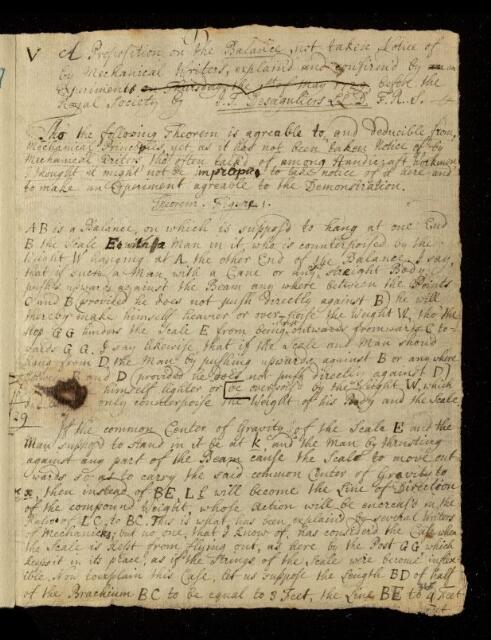 V A Proposition on the Balance, not taken Notice of
by Mechanical Writers, explain'd and confirm'd by an
Experiment on Thursday the 1st of May before the
Royal Society by J. T. Desaguliers LL.D. F.R.S.
Tho' the following Theorem is agreable to, and deducible from,
Mechanical Principles, yet as it has not been taken Notice of by
Mechanical Writers, tho' often talk'd of among Handicraft Workmen,
I thought it might not be improper to take notice of it here and
to make an Experiment agreable to the Demonstration.
Theorem. Figure 1.
AB is a Balance, on which is suppos'd to hang at one End
B the Scale E with a Man in it, who is counterpoised by the
Weight W hanging at A the other End of the Balance. I say,
that if such a Man, with a Cane or any streight Body
pushes upwards against the Beam any where between the Points
C and B (provided he does not push directly against B) he will
thereby make himself heavier or over-poise the Weight W, tho' the
stop GG hinders the Scale E from being outwards from C to-
wards GG. I say likewise, that if the Scale and Man should
hang from D, the Man by pushing upwards against B or any where
and D (provided he does not push directly against D)
himself lighter or be overpois'd by the Weight W, which
only counterpoise the Weight of his Body and the Scale
If the common Center of Gravity of the Scale E and the
Man suppos'd to stand in it be at k, and the Man by thrusting
against any part of the Beam cause the Scale to move out-
wards so as to carry the said common Center of Gravity to
x, then instead of BE, L l will become the Line of Direction
of the compound Weight, whose Action will be encreas'd in the
Ratio of LC, to BC. This is what has been explain'd by several Writers
of Mechanicks; but no one, that I know of, has considered the Case when
the Scale is kept from flying out, as here by the Post GG, which
keeps it in its place, as if the Strings of the Scale were become inflex-
ible. Now to explain this Case, let us suppose the Length BD of half
of the Brachium BC to be equal to 3 Feet, the Line BE to 4 Feet